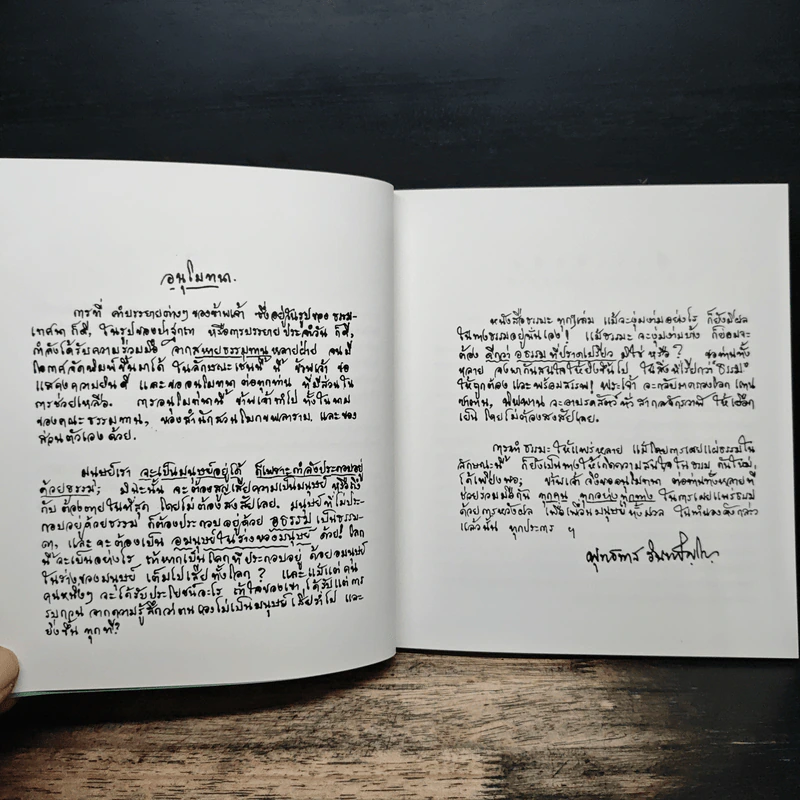 อนุโมทนา.
การที่ คำบรรยายต่างๆ ของข้าพเจ้า ซึ่งอยู่ในรูปของ ธรรม-
เทศนา ก็ดี, ในรูปของปาฐกถา หรือการบรรยาย ประจำวัน ก็ดี,
กำลังได้รับความร่วมมือ จากสหายธรรมทาน หลายฝ่าย จนมี
โอกาสจัดพิมพ์ขึ้นมาได้ ในลักษณะเช่นนี้ นี้ ข้าพเจ้า ขอ
แสดงความยินดี และขออนุโมทนา ต่อทุกท่าน ที่มีส่วนใน
การช่วยเหลือ. การอนุโมทนานี้ ข้าพเจ้าทำไป ทั้งในนาม
ของคณะธรรมทาน, ของสำนักสวนโมกขพลาราม, และของ
ส่วนตัวเอง ด้วย.
มนุษย์เรา จะเป็นมนุษย์อยู่ได้ ก็เพราะกำลังประกอบอยู่
ด้วยธรรม; มิฉะนั้น จะต้องสูญเสียความเป็นมนุษย์ หรือถึง
กับ ต้องตายในที่สุด โดยไม่ต้องสงสัยเลย. มนุษย์ที่ไม่ประ-
กอบอยู่ด้วยธรรม ก็ต้องประกอบอยู่ด้วย อธรรม เป็นธรรม-
ดา, และ จะต้องเป็น อมนุษย์ในร่างของมนุษย์ ด้วย! โลก
นี้จะเป็นอย่างไร ถ้าหากเป็นโลกที่ประกอบอยู่ ด้วยอมนุษย์
ในร่างของมนุษย์ เต็มไปเสียทั้งโลก? และแม้แต่ คน
คนหนึ่งๆ จะได้รับประโยชน์อะไร ถ้าใจของเขา ได้รับแต่การ
รบกวน จากความรู้สึกว่าตนเองไม่เป็นมนุษย์ เสียทำไป และ
ยิ่งขึ้น ทุกที?
หนังสือธรรมะ ทุกๆเล่ม แม้จะงุ่มง่ามอย่างไร ก็ยังมีผล
ในทางธรรมอยู่นั่นเอง! แม้ธรรมะ จะงุ่มง่ามบ้าง ก็ย่อมจะ
ต้อง ดีกว่า อธรรม ที่ปราดเปรียว มิใช่ หรือ? ขอท่านทั้ง
หลาย จงพากันสนใจให้ยิ่งขึ้นไป ในสิ่งที่เรียกว่า "ธรรม"
ให้ถูกต้อง และพร้อมสรรพ! พระเจ้า จะกลับมาครองโลก แทน
ซาตาน, นิพพาน จะอาบรดสัตว์ ทั่ว สากลจักรวาฬ ให้เยือก
เย็น โดยไม่ต้องสงสัยเลย.
การทำ ธรรมะ ให้แพร่หลาย แม้โดยการเผยแผ่ธรรมใน
ลักษณะนี้ ก็ยังเป็นทางให้เกิดความสนใจ ในธรรม กันใหม่,
ได้เพียงพอ; ข้าพเจ้า จึงขออนุโมทนา ต่อท่านทั้งหลายที่
ช่วยร่วมมือกัน ทุกคน ทุกอย่างทุกทาง ในการเผยแพร่ธรรม
ด้วยการหวังผล เพื่อเพื่อนมนุษย์ ทั้งมวล ในทำนองดังกล่าว
แล้วนั้น ทุกประการ ฯ
พุทธทาส อินทปัญโญ